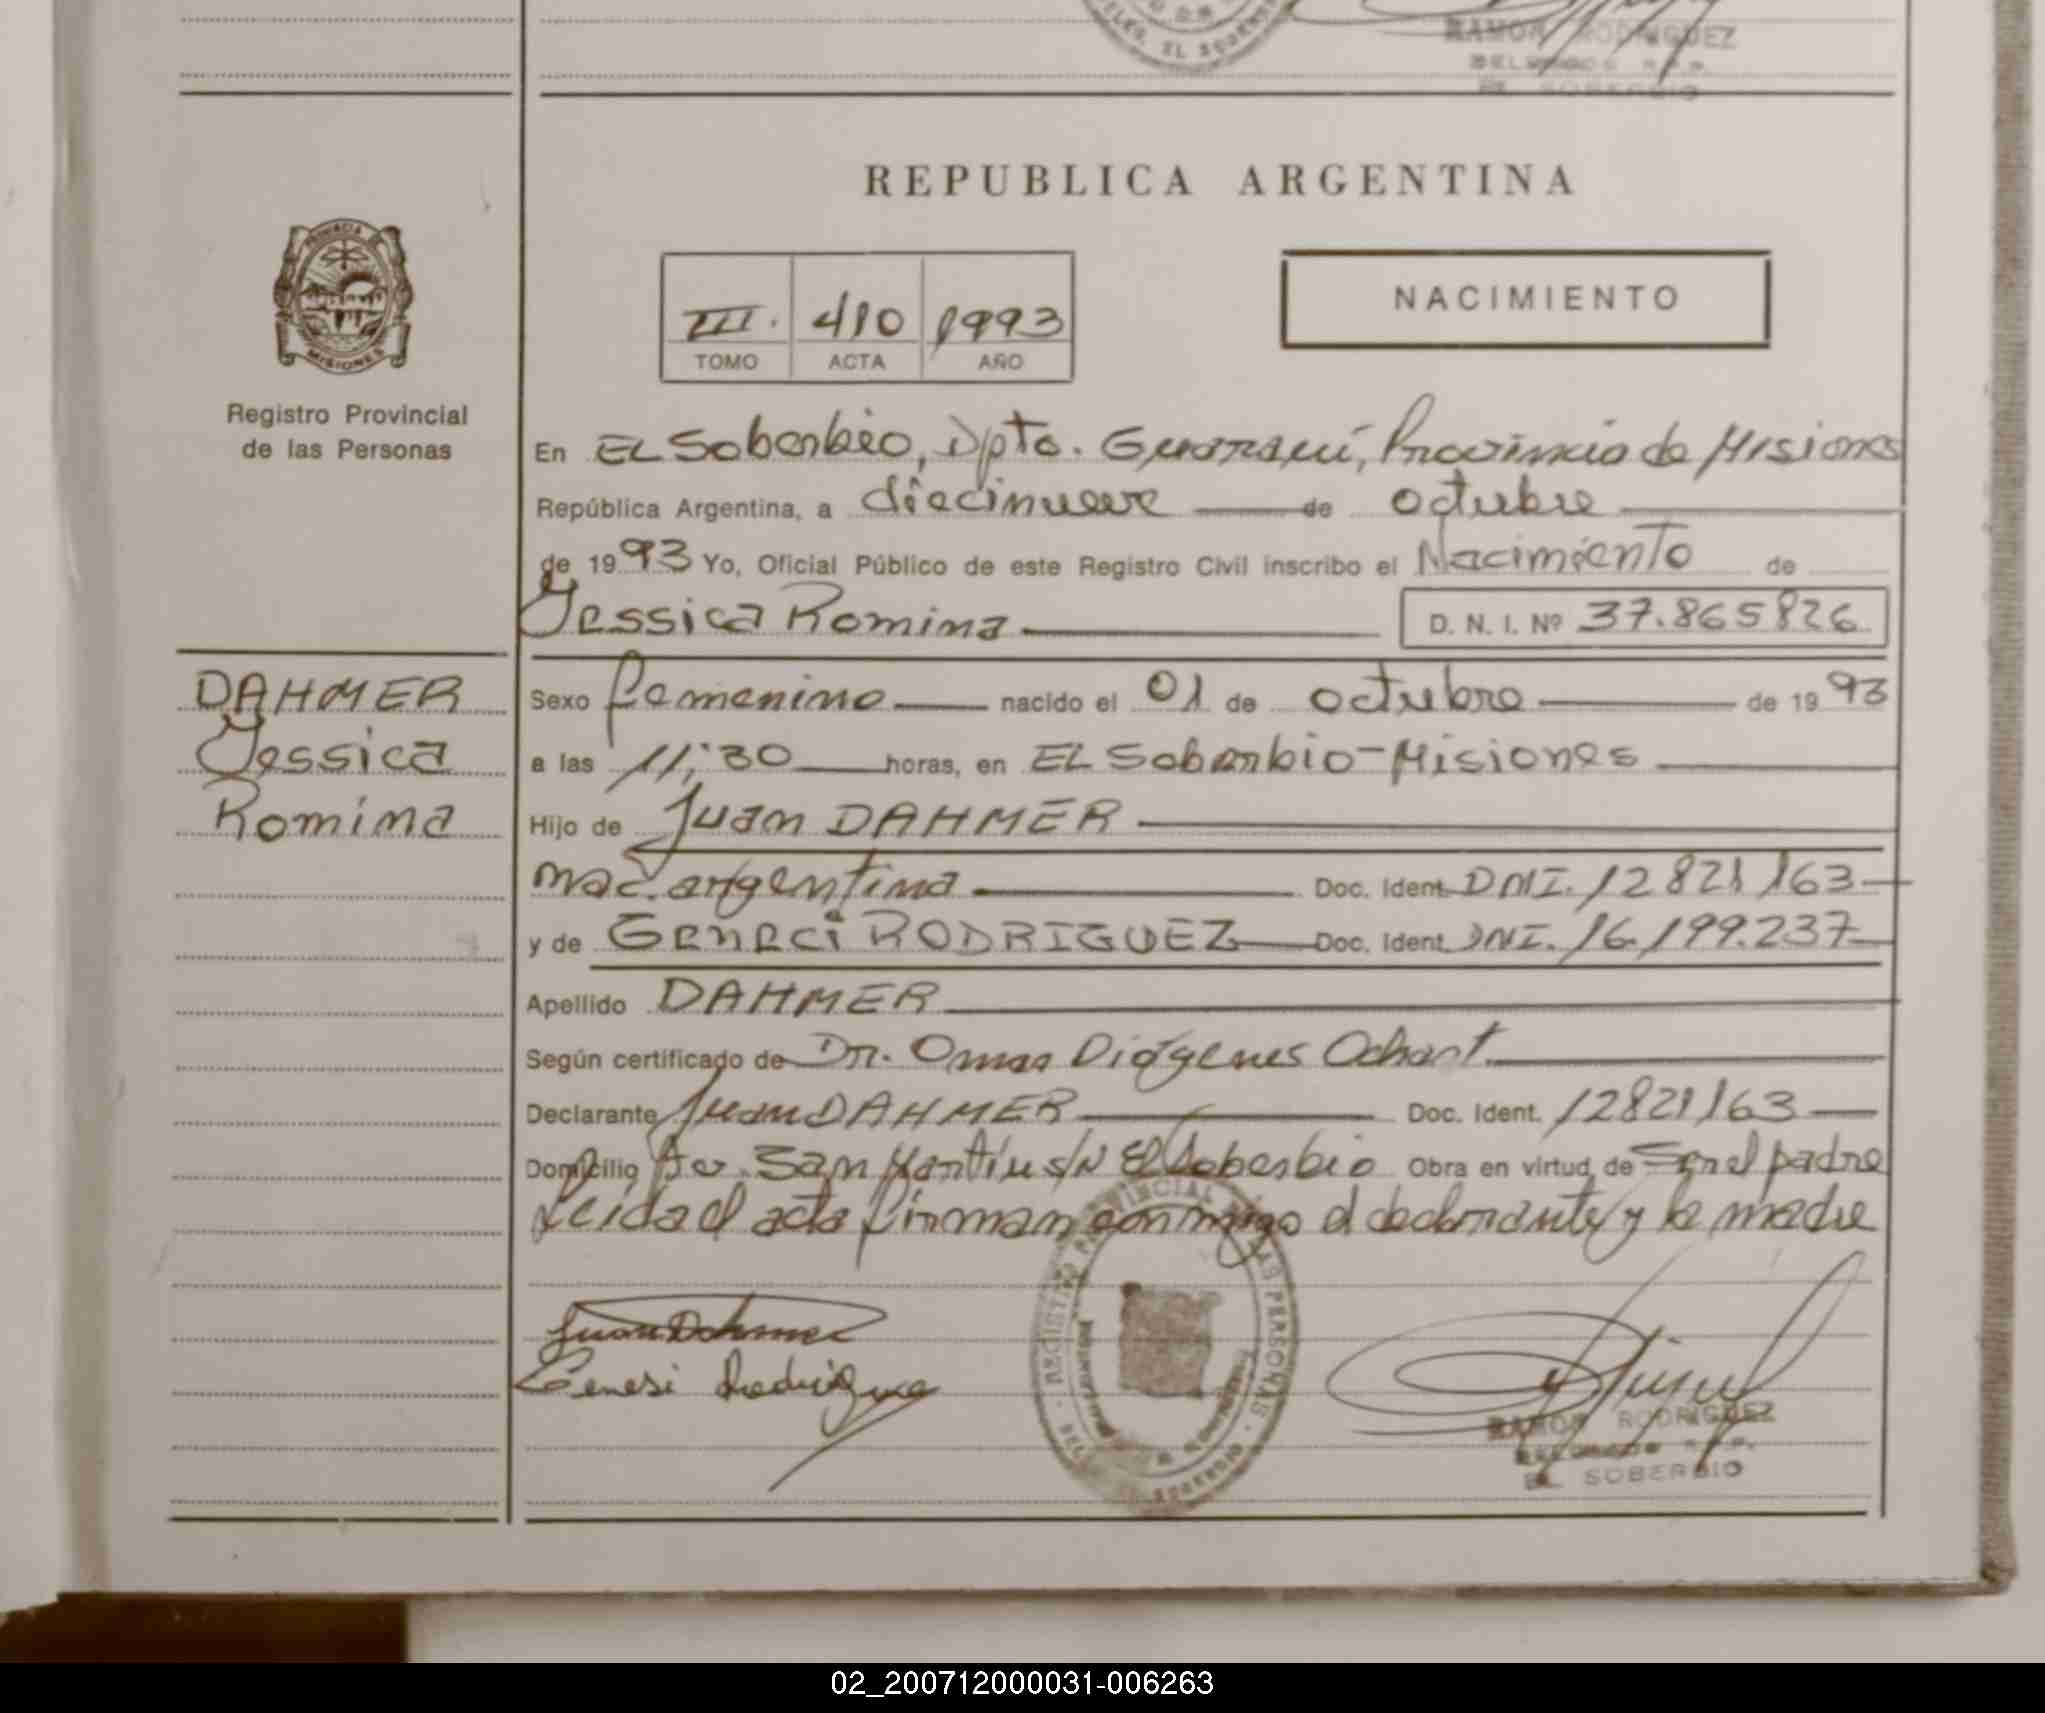 RAMON RODRIGUEZ
EL SOBERBIO
REPUBLICA ARGENTINA
PROVINCIA DE
MISIONES
Registro Provincial
de las Personas
III. 410 1993
TOMO ACTA AÑO
NACIMIENTO
En EL Soberbio, Dpto. Guaraní, Provincia de Misiones
República Argentina, a diecinueve de octubre
de 1993 Yo, Oficial Público de este Registro Civil inscribo el Nacimiento de
Jessica Romina D. N. I. Nº 37.865826
DAHMER
Jessica
Romina
Sexo femenino nacido el 01 de octubre de 1993
a las 11:30 horas, en EL Soberbio-Misiones
Hijo de Juan DAHMER
nac. argentina Doc. Ident. DNI. 12821163
y de Geneci RODRIGUEZ Doc. Ident. DNI. 16.199.237
Apellido DAHMER
Según certificado de Dr. Omar Diógenes
Declarante Juan DAHMER Doc. Ident. 12821163
Domicilio Av. San Martín s/N El Soberbio Obra en virtud de Ser el padre
Leida el acta firman conmigo el declarante y la madre
Juan Dahmer
Genesi Rodrigue
REGISTRO PROVINCIAL DE LAS PERSONAS
RAMON RODRIGUEZ
EL SOBERBIO
02_200712000031-006263